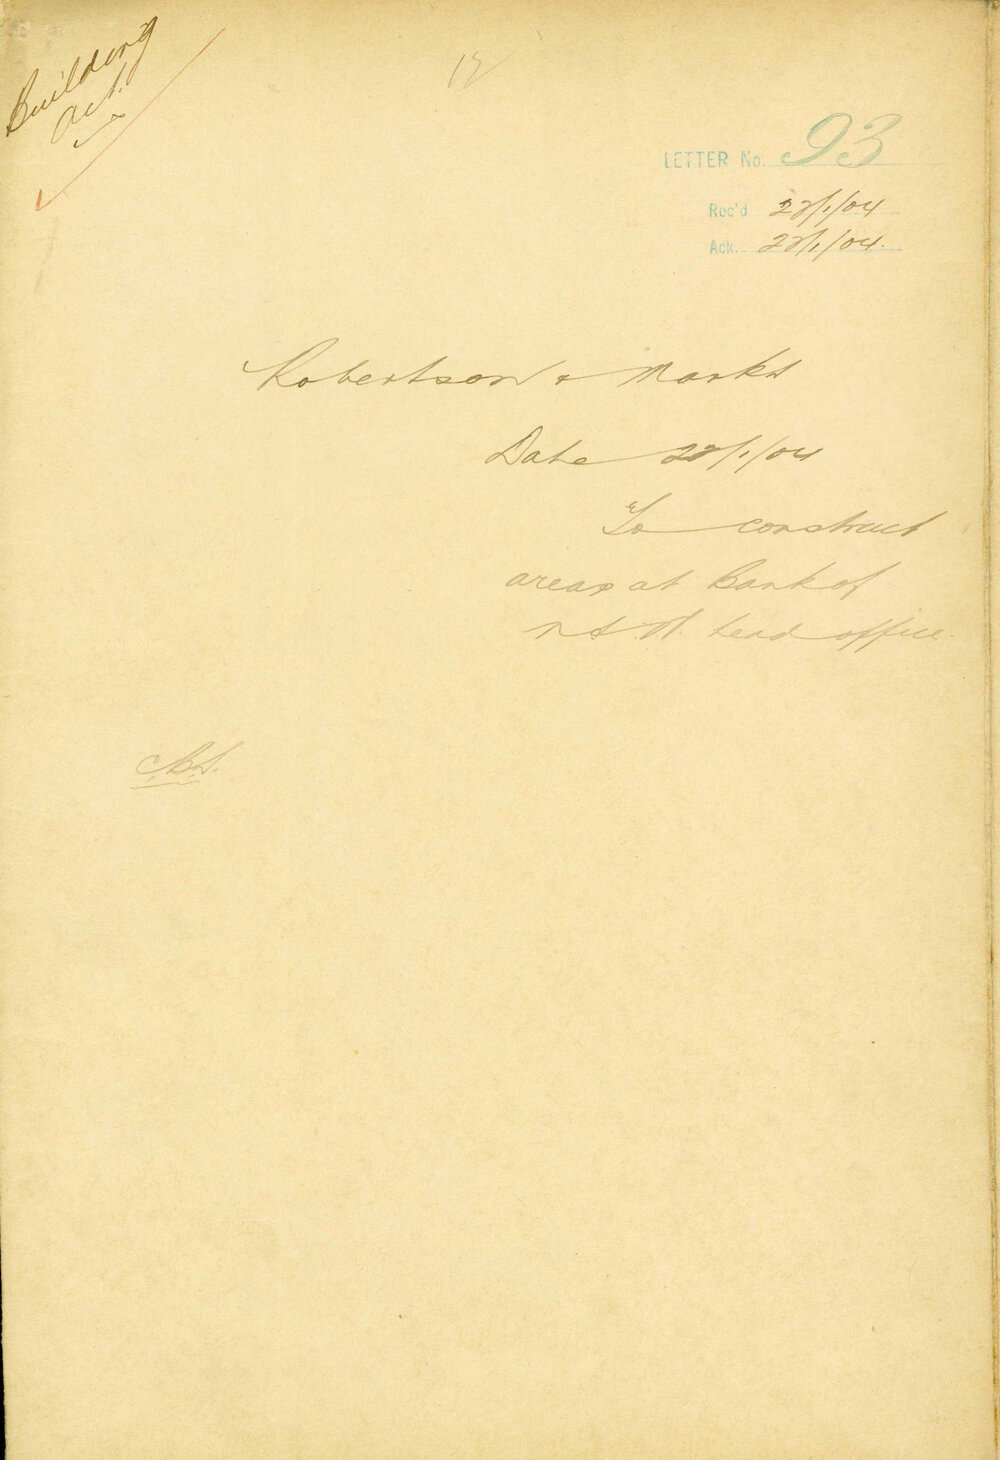 Building
Act.
12
LETTER No. 93
Rec'd 22/1/04
Ack. 22/1/04.
Robertson & Marks
Date 22/1/04
To construct
areas at Bank of
N.S.W. head office.